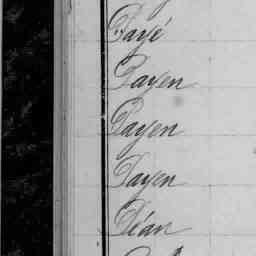 Payé
Payen
Payen
Payen
Péan